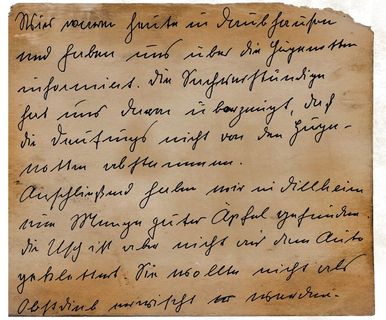 Wir waren heute in Daubhausen
und haben uns über die Hugenotten
informiert. Die Sachverständige
hat uns davon überzeugt, daß
die nicht von den Huge-
notten abstammen.
Anschließend haben wir in Dillheim
eine Menge guter Äpfel gefunden.
Die ist aber nicht aus dem Auto
geklettert. Sie wollte nicht als
Obstdieb erwischt werden.